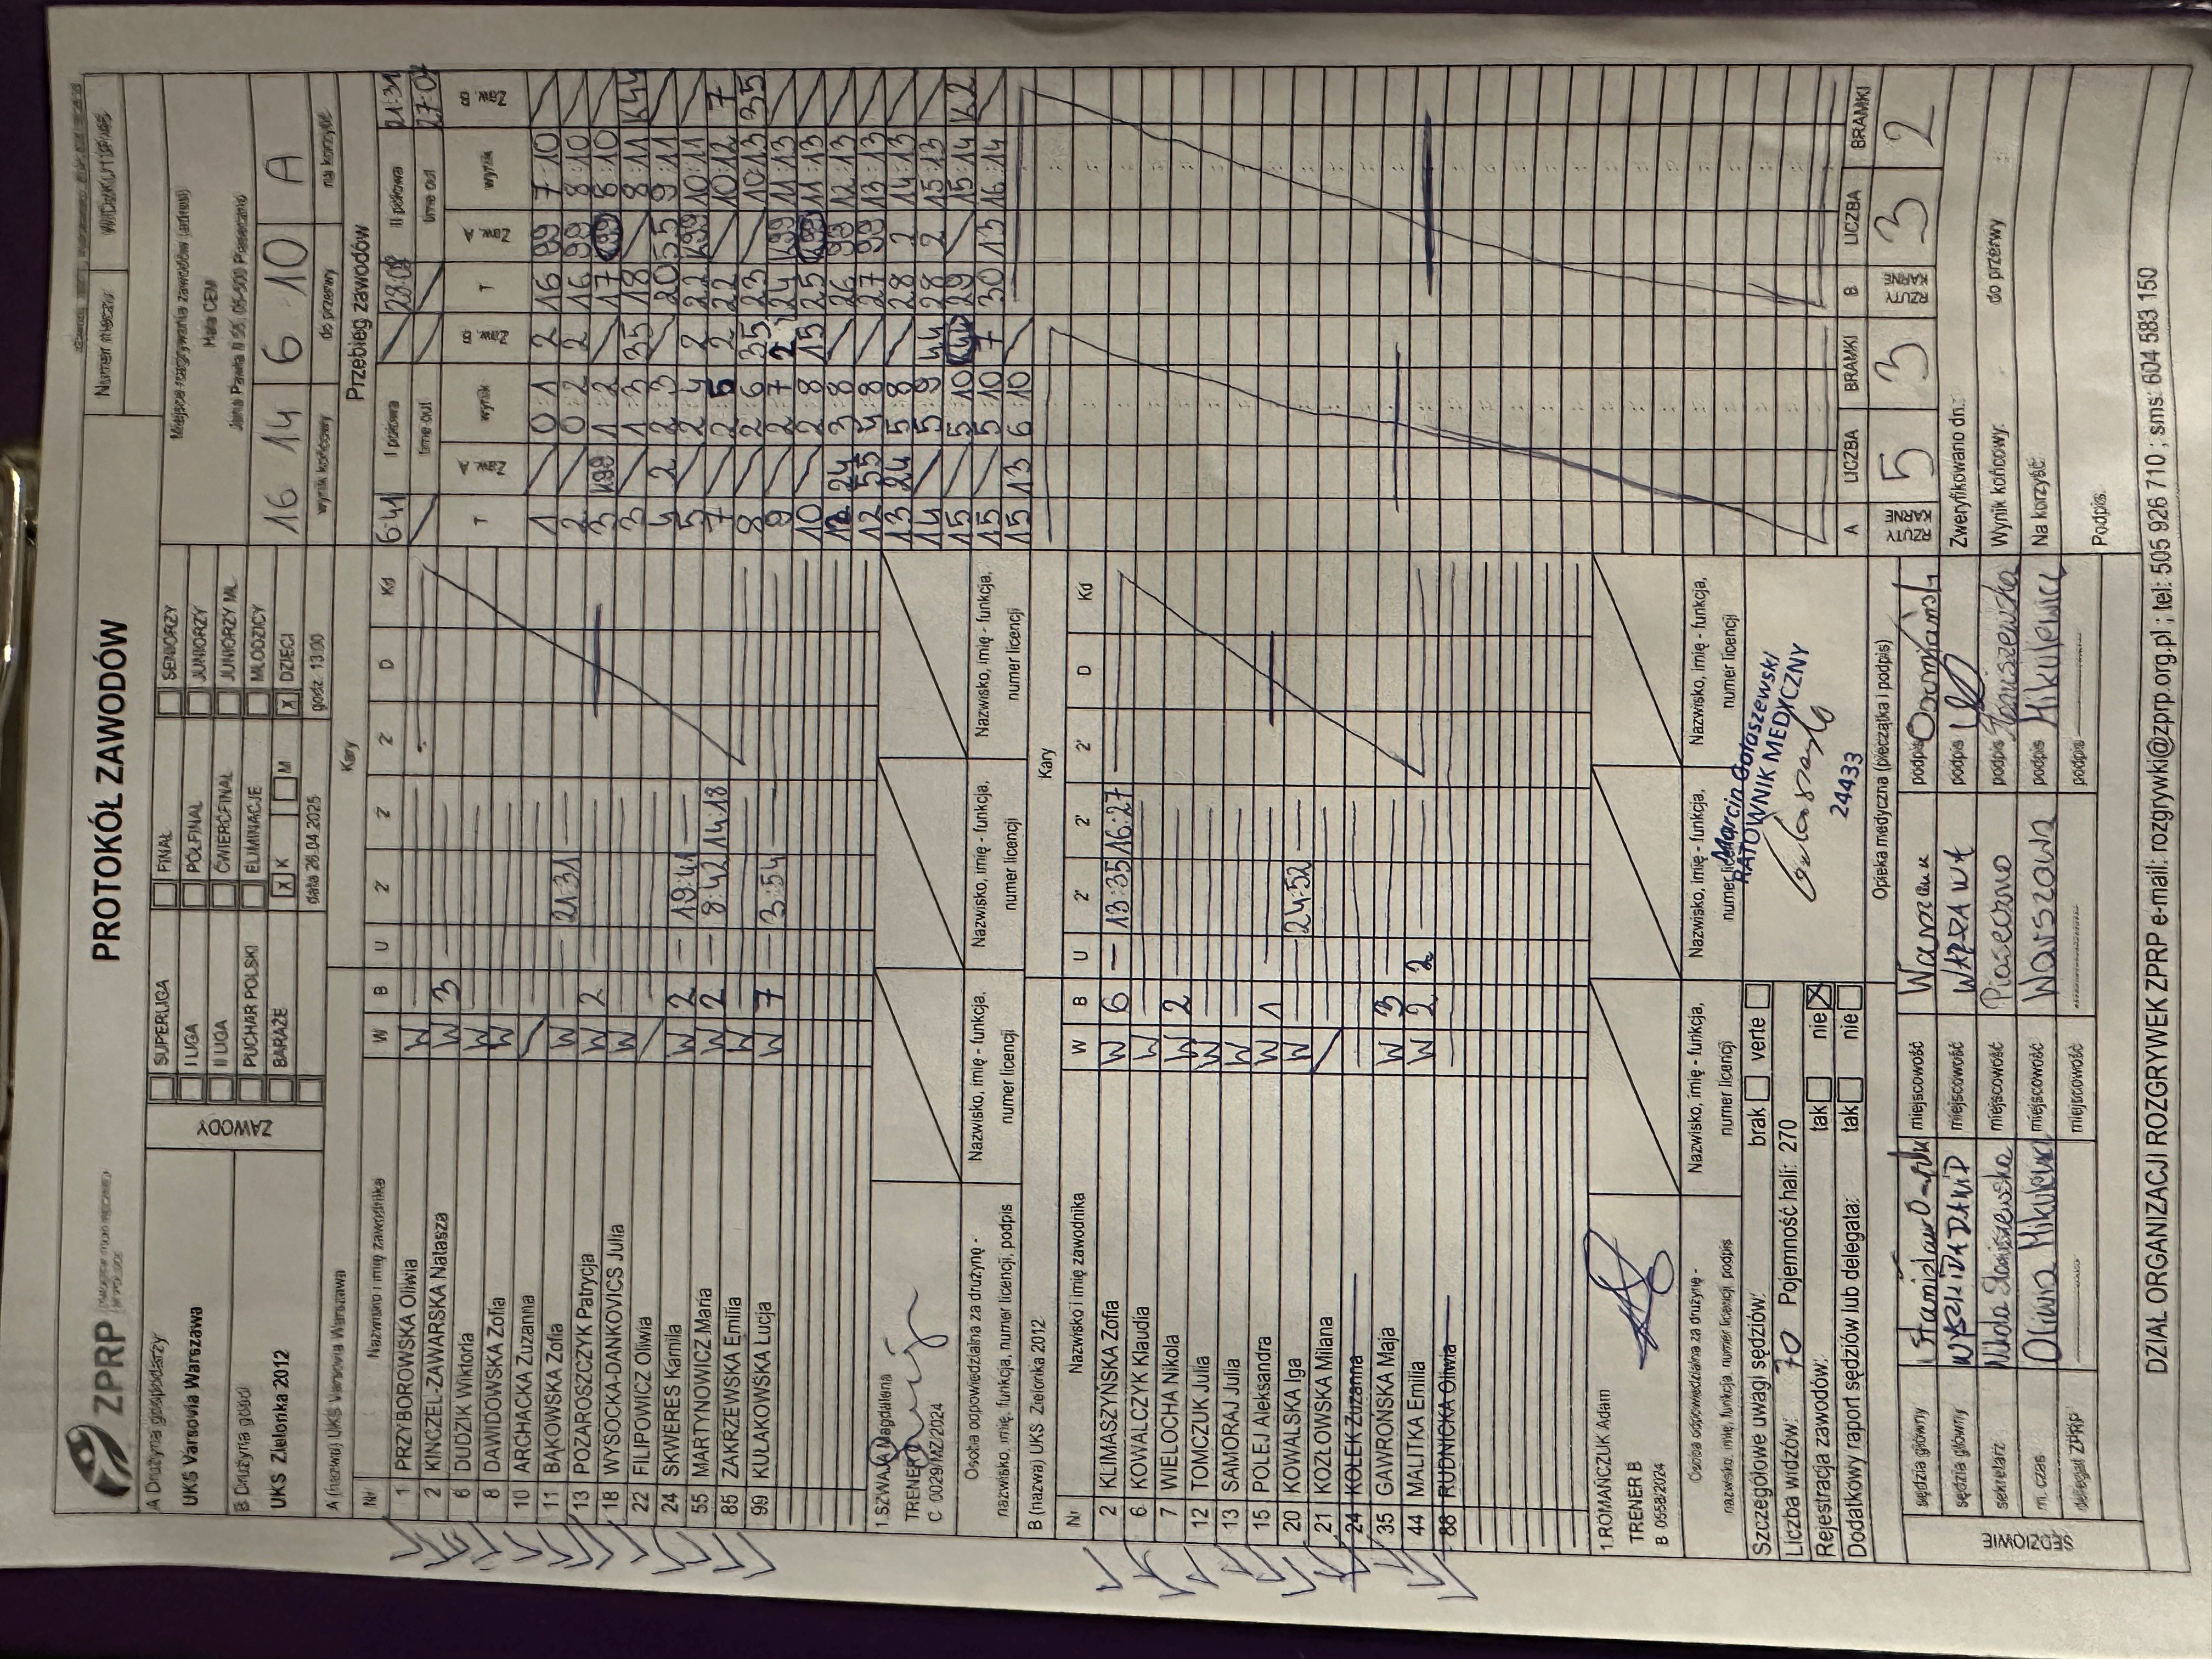 ZPRP
PROTOKÓŁ ZAWODÓW
Numer meczu
A Drużyna gospodarzy
UKS Varsovia Warszawa
B Drużyna gości
UKS Zielonka 2012
ZAWODY
SUPERLIGA
I LIGA
II LIGA
PUCHAR POLSKI
BARAŻE
FINAŁ
PÓŁFINAŁ
ĆWIERĆFINAŁ
ELIMINACJE
X K M
data 26.04.2025
SENIORZY
JUNIORZY
JUNIORZY MŁ.
MŁODZICY
X DZIECI
godz. 13:00
Miejsce rozgrywania zawodów (adres)
Hala CEM
Jana Pawła II 55, 05-500 Piaseczno
16 14 6 10 A
wynik końcowy do przerwy na korzyść
A (nazwa) UKS Varsovia Warszawa
Kary
Nr Nazwisko i imię zawodnika W B U 2' 2' 2' D Kd
1 PRZYBOROWSKA Oliwia W
2 KINCZEL-ZAWARSKA Natasza W 3
6 DUDZIK Wiktoria W
8 DAWIDOWSKA Zofia W
10 ARCHACKA Zuzanna
11 BĄKOWSKA Zofia W 21:31
13 POZAROSZCZYK Patrycja W 2
18 WYSOCKA-DANKOVICS Julia W
22 FILIPOWICZ Oliwia
24 SKWERES Kamila W 2 19:41
55 MARTYNOWICZ Maria W 2 9:42 14:18
85 ZAKRZEWSKA Emilia W
99 KUŁAKOWSKA Łucja W 7 3:54
1.SZWAJA Magdalena
TRENER
C 0029/MAZ/2024
Osoba odpowiedzialna za drużynę -
nazwisko, imię, funkcja, numer licencji, podpis
Nazwisko, imię - funkcja,
numer licencji
Nazwisko, imię - funkcja,
numer licencji
Nazwisko, imię - funkcja,
numer licencji
B (nazwa) UKS Zielonka 2012
Kary
Nr Nazwisko i imię zawodnika W B U 2' 2' 2' D Kd
2 KLIMASZYŃSKA Zofia W 6 13:35 16:27
6 KOWALCZYK Klaudia W
7 WIELOCHA Nikola W 2
12 TOMCZUK Julia W
13 SAMORAJ Julia W
15 POLEJ Aleksandra W 1
20 KOWALSKA Iga W 24:52
21 KOZŁOWSKA Milana
24 KOŁEK Zuzanna
35 GAWROŃSKA Maja W 3
44 MALITKA Emilia W 2 2
88 RUDNICKA Oliwia
1.ROMAŃCZUK Adam
TRENER B
B 0558/2024
Osoba odpowiedzialna za drużynę -
nazwisko, imię, funkcja, numer licencji, podpis
Nazwisko, imię - funkcja,
numer licencji
Nazwisko, imię - funkcja,
numer licencji
Nazwisko, imię - funkcja,
numer licencji
Przebieg zawodów
6:41 I połowa 28:08 II połowa 21:31
time out time out 27:07
T Zaw. A wynik Zaw. B T Zaw. A wynik Zaw. B
1 0:1 2 16 99 7:10
2 0:2 2 16 99 8:10
3 K99 1:2 17 K99 8:10
3 1:3 35 18 8:11 K44
4 2 2:3 20 55 9:11
5 2:4 2 22 K99 10:11
7 2:5 2 22 10:12 7
8 2:6 35 23 10:13 35
9 2:7 2 24 K99 11:13
10 2:8 15 25 K99 11:13
12 24 3:8 26 99 12:13
12 55 4:8 27 99 13:13
13 24 5:8 28 2 14:13
14 5:9 44 28 2 15:13
15 5:10 K44 29 15:14 K2
15 5:10 7 30 13 16:14
15 13 6:10
A LICZBA BRAMKI B LICZBA BRAMKI
RZUTY KARNE 5 3 RZUTY KARNE 3 2
Szczegółowe uwagi sędziów: brak verte
Liczba widzów: 70 Pojemność hali: 270
Rejestracja zawodów: tak nie X
Dodatkowy raport sędziów lub delegata: tak nie
Marcin Gołaszewski
RATOWNIK MEDYCZNY
24433
Opieka medyczna (pieczątka i podpis)
SĘDZIOWIE
sędzia główny miejscowość podpis
sędzia główny miejscowość podpis
sekretarz miejscowość Piaseczno podpis
m. czas Oliwia miejscowość Warszawa podpis Mikulewicz
delegat ZPRP miejscowość podpis
Zweryfikowano dn.:
Wynik końcowy: do przerwy
Na korzyść:
Podpis:
DZIAŁ ORGANIZACJI ROZGRYWEK ZPRP e-mail: rozgrywki@zprp.org.pl ; tel: 505 926 710 ; sms: 604 583 150